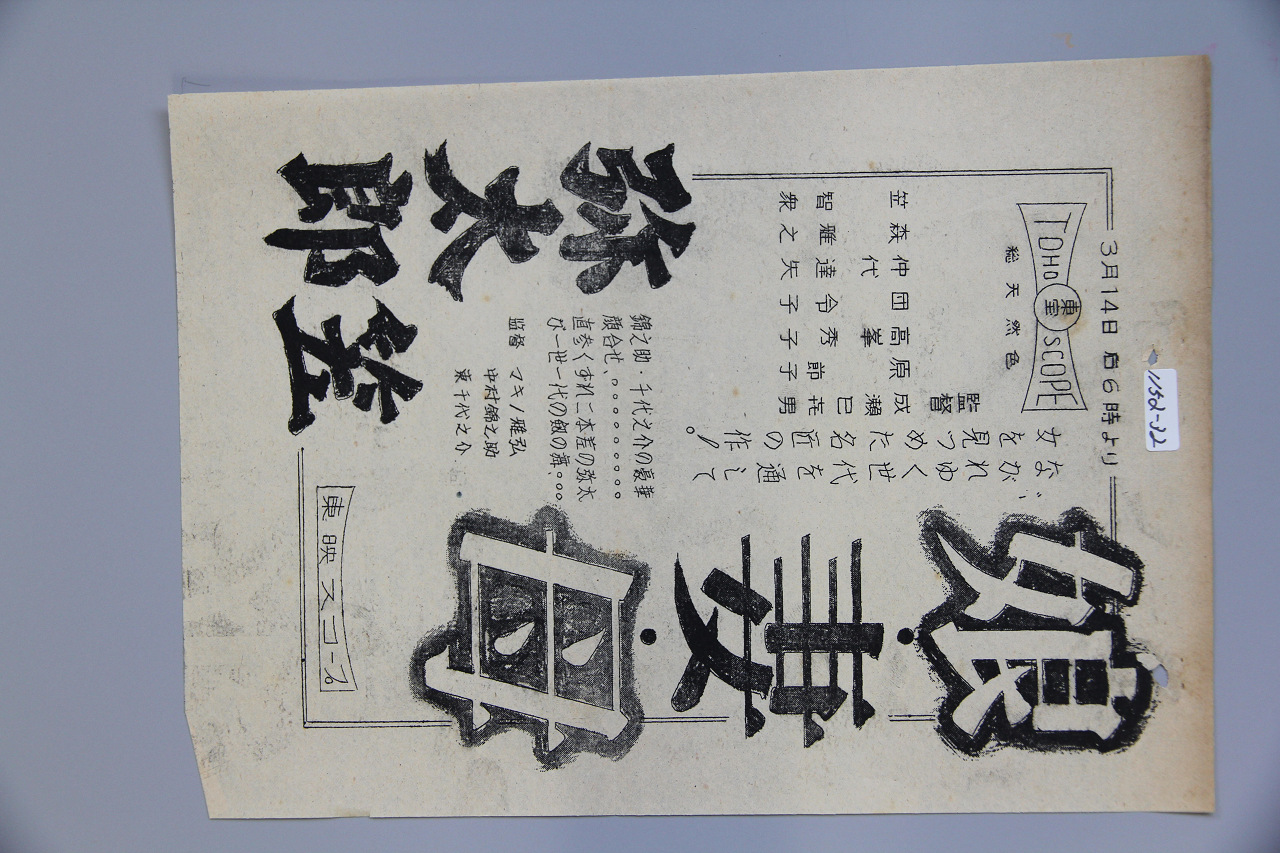 3月14日 后6時より
TOHO 東宝 SCOPE
総天然色
娘・妻・母
ながれゆく世代を通して
女を見つめた名匠の作!
監督 成瀬巳㐂男
原節子
高峯秀子
団令子
仲代達矢
森雅之
笠智衆
弥太郎笠
錦之助・千代之介の豪華
顔合せ、。。。。。。。。。
直参くずれ二本差の弥太
び一世一代の剱の舞。。。
監督 マキノ雅弘
中村錦之助
東千代之介
東映スコープ